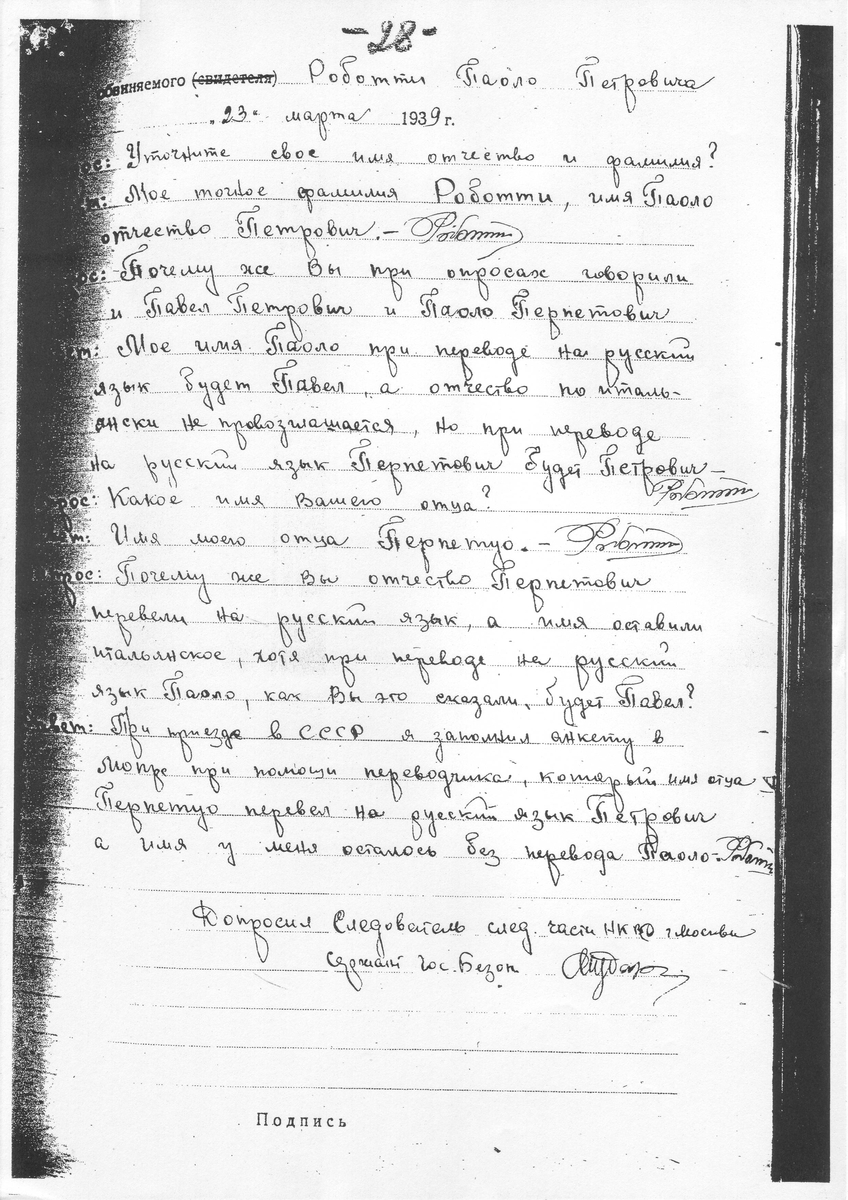 -28-
обвиняемого (свидетеля) Роботти Паоло Петровича
„23“ марта 1939 г.
ос: Уточните свое имя отчество и фамилия?
т: Мое точное фамилия Роботти, имя Паоло
отчество Петрович. – Robotti
ос: Почему же Вы при опросах говорили
и Павел Петрович и Паоло Перпетович
ет: Мое имя Паоло при переводе на русский
язык будет Павел, а отчество по италь-
янски не провозглашается, но при переводе
на русский язык Перпетович будет Петрович –
Robotti
рос: Какое имя вашего отца?
ет: Имя моего отца Перпетуо. – Robotti
рос: Почему же Вы отчество Перпетович
перевели на русский язык, а имя оставили
итальянское, хотя при переводе на русский
язык Паоло, как Вы это сказали, будет Павел?
вет: При приезде в СССР я заполнил анкету в
Мопре при помощи переводчика, который имя отца
Перпетуо перевел на русский язык Петрович
а имя у меня осталось без перевода Паоло – Robotti
Допросил Следователь след. части НКВД г Москви
Сержант Гос. Безоп
Подпись